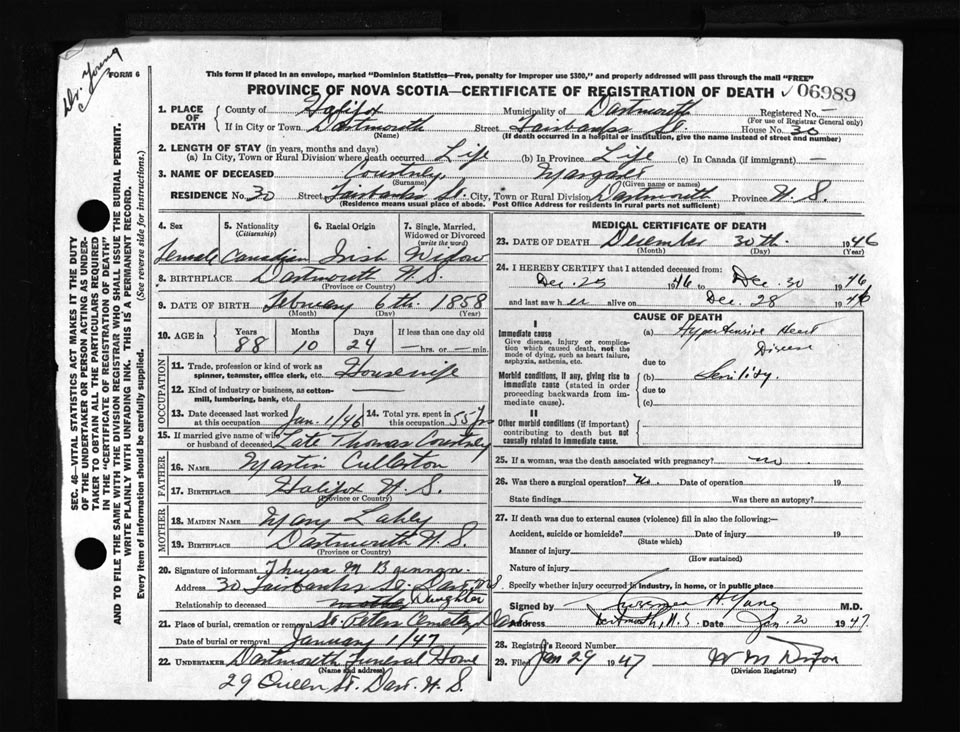 Dr. Young
FORM 6
This form if placed in an envelope, marked "Dominion Statistics—Free, penalty for improper use $300," and properly addressed will pass through the mail "FREE"
PROVINCE OF NOVA SCOTIA—CERTIFICATE OF REGISTRATION OF DEATH 06989
1. PLACE OF DEATH County of Halifax Municipality of Dartmouth Registered No. —
(For use of Registrar General only)
If in City or Town Dartmouth Street Fairbanks St. House No. 30
(Name) (If death occurred in a hospital or institution, give the name instead of street and number)
2. LENGTH OF STAY (in years, months and days)
(a) In City, Town or Rural Division where death occurred Life (b) In Province Life (c) In Canada (if immigrant) —
3. NAME OF DECEASED Courtney, Margaret
(Surname) (Given name or names)
RESIDENCE No. 30 Street Fairbanks St. City, Town or Rural Division Dartmouth Province N. S.
(Residence means usual place of abode. Post Office Address for residents in rural parts not sufficient)
4. Sex 5. Nationality (Citizenship) 6. Racial Origin 7. Single, Married, Widowed or Divorced (write the word)
Female Canadian Irish Widow
8. BIRTHPLACE Dartmouth N. S.
(Province or Country)
9. DATE OF BIRTH February 6th. 1858
(Month) (Day) (Year)
10. AGE in Years Months Days If less than one day old
88 10 24 —hrs. or —min.
OCCUPATION
11. Trade, profession or kind of work as spinner, teamster, office clerk, etc. Housewife
12. Kind of industry or business, as cotton-mill, lumbering, bank, etc.
13. Date deceased last worked at this occupation Jan. 1/46 14. Total yrs. spent in this occupation 55 yrs
15. If married give name of wife or husband of deceased Late Thomas Courtney
FATHER
16. NAME Martin Cullerton
17. BIRTHPLACE Halifax N. S.
(Province or Country)
MOTHER
18. MAIDEN NAME Mary Lahey
19. BIRTHPLACE Dartmouth N. S.
(Province or Country)
20. Signature of informant M Brennan
Address 30 Fairbanks St. Dart. N S
Relationship to deceased mother Daughter
21. Place of burial, cremation or removal St. Peters Cemetery Dart
Date of burial or removal January 1/47
22. UNDERTAKER Dartmouth Funeral Home
(Name and address)
29 Queen St. Dart. N. S.
MEDICAL CERTIFICATE OF DEATH
23. DATE OF DEATH December 30th. 1946
(Month) (Day) (Year)
24. I HEREBY CERTIFY that I attended deceased from:
Dec. 25 1946 to Dec. 30 1946
and last saw her alive on Dec. 28 1946
CAUSE OF DEATH
I
Immediate cause (a) Hypertensive Heart
Give disease, injury or complication which caused death, not the mode of dying, such as heart failure, asphyxia, asthenia, etc. Disease
due to
Morbid conditions, if any, giving rise to immediate cause (stated in order proceeding backwards from immediate cause). (b) Senility.
due to
(c)
II
Other morbid conditions (if important) contributing to death but not causally related to immediate cause.
25. If a woman, was the death associated with pregnancy? no
26. Was there a surgical operation? No. Date of operation 19
State findings Was there an autopsy?
27. If death was due to external causes (violence) fill in also the following:—
Accident, suicide or homicide? Date of injury 19
(State which)
Manner of injury
(How sustained)
Nature of injury
Specify whether injury occurred in industry, in home, or in public place
Signed by H. Young M.D.
Address Dartmouth, N.S. Date Jan. 20 1947
28. Registrar's Record Number
29. Filed Jan 29 1947 W M Dixon
(Division Registrar)
SEC. 46—VITAL STATISTICS ACT MAKES IT THE DUTY
OF THE UNDERTAKER OR PERSON ACTING AS UNDER-
TAKER TO OBTAIN ALL THE PARTICULARS REQUIRED
IN THE "CERTIFICATE OF REGISTRATION OF DEATH"
AND TO FILE THE SAME WITH THE DIVISION REGISTRAR WHO SHALL ISSUE THE BURIAL PERMIT.
WRITE PLAINLY WITH UNFADING INK. THIS IS A PERMANENT RECORD.
Every item of information should be carefully supplied. (See reverse side for instructions.)